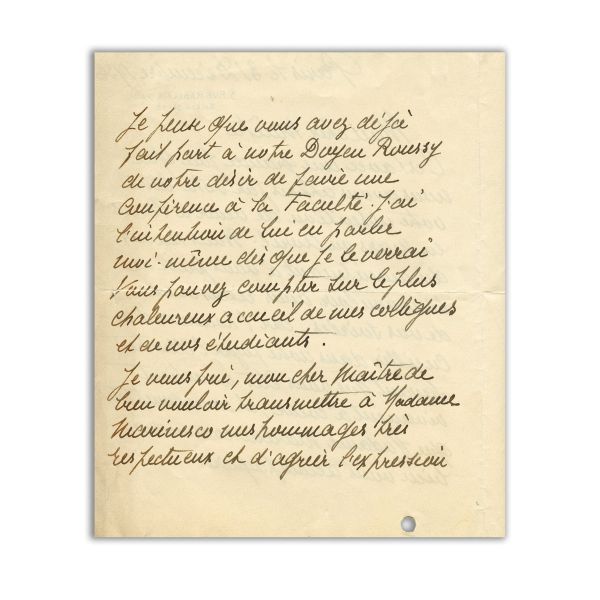 Je pense que vous avez déjà
fait part à notre Doyen Roussy
de votre désir de faire une
conférence à la Faculté. J'ai
l'intention de lui en parler
moi-même dès que je le verrai
Vous pouvez compter sur le plus
chaleureux accueil de mes collègues
et de nos étudiants.
Je vous prie, mon cher Maître de
bien vouloir transmettre à Madame
Marinesco mes hommages très
respectueux et d'agréer l'expression